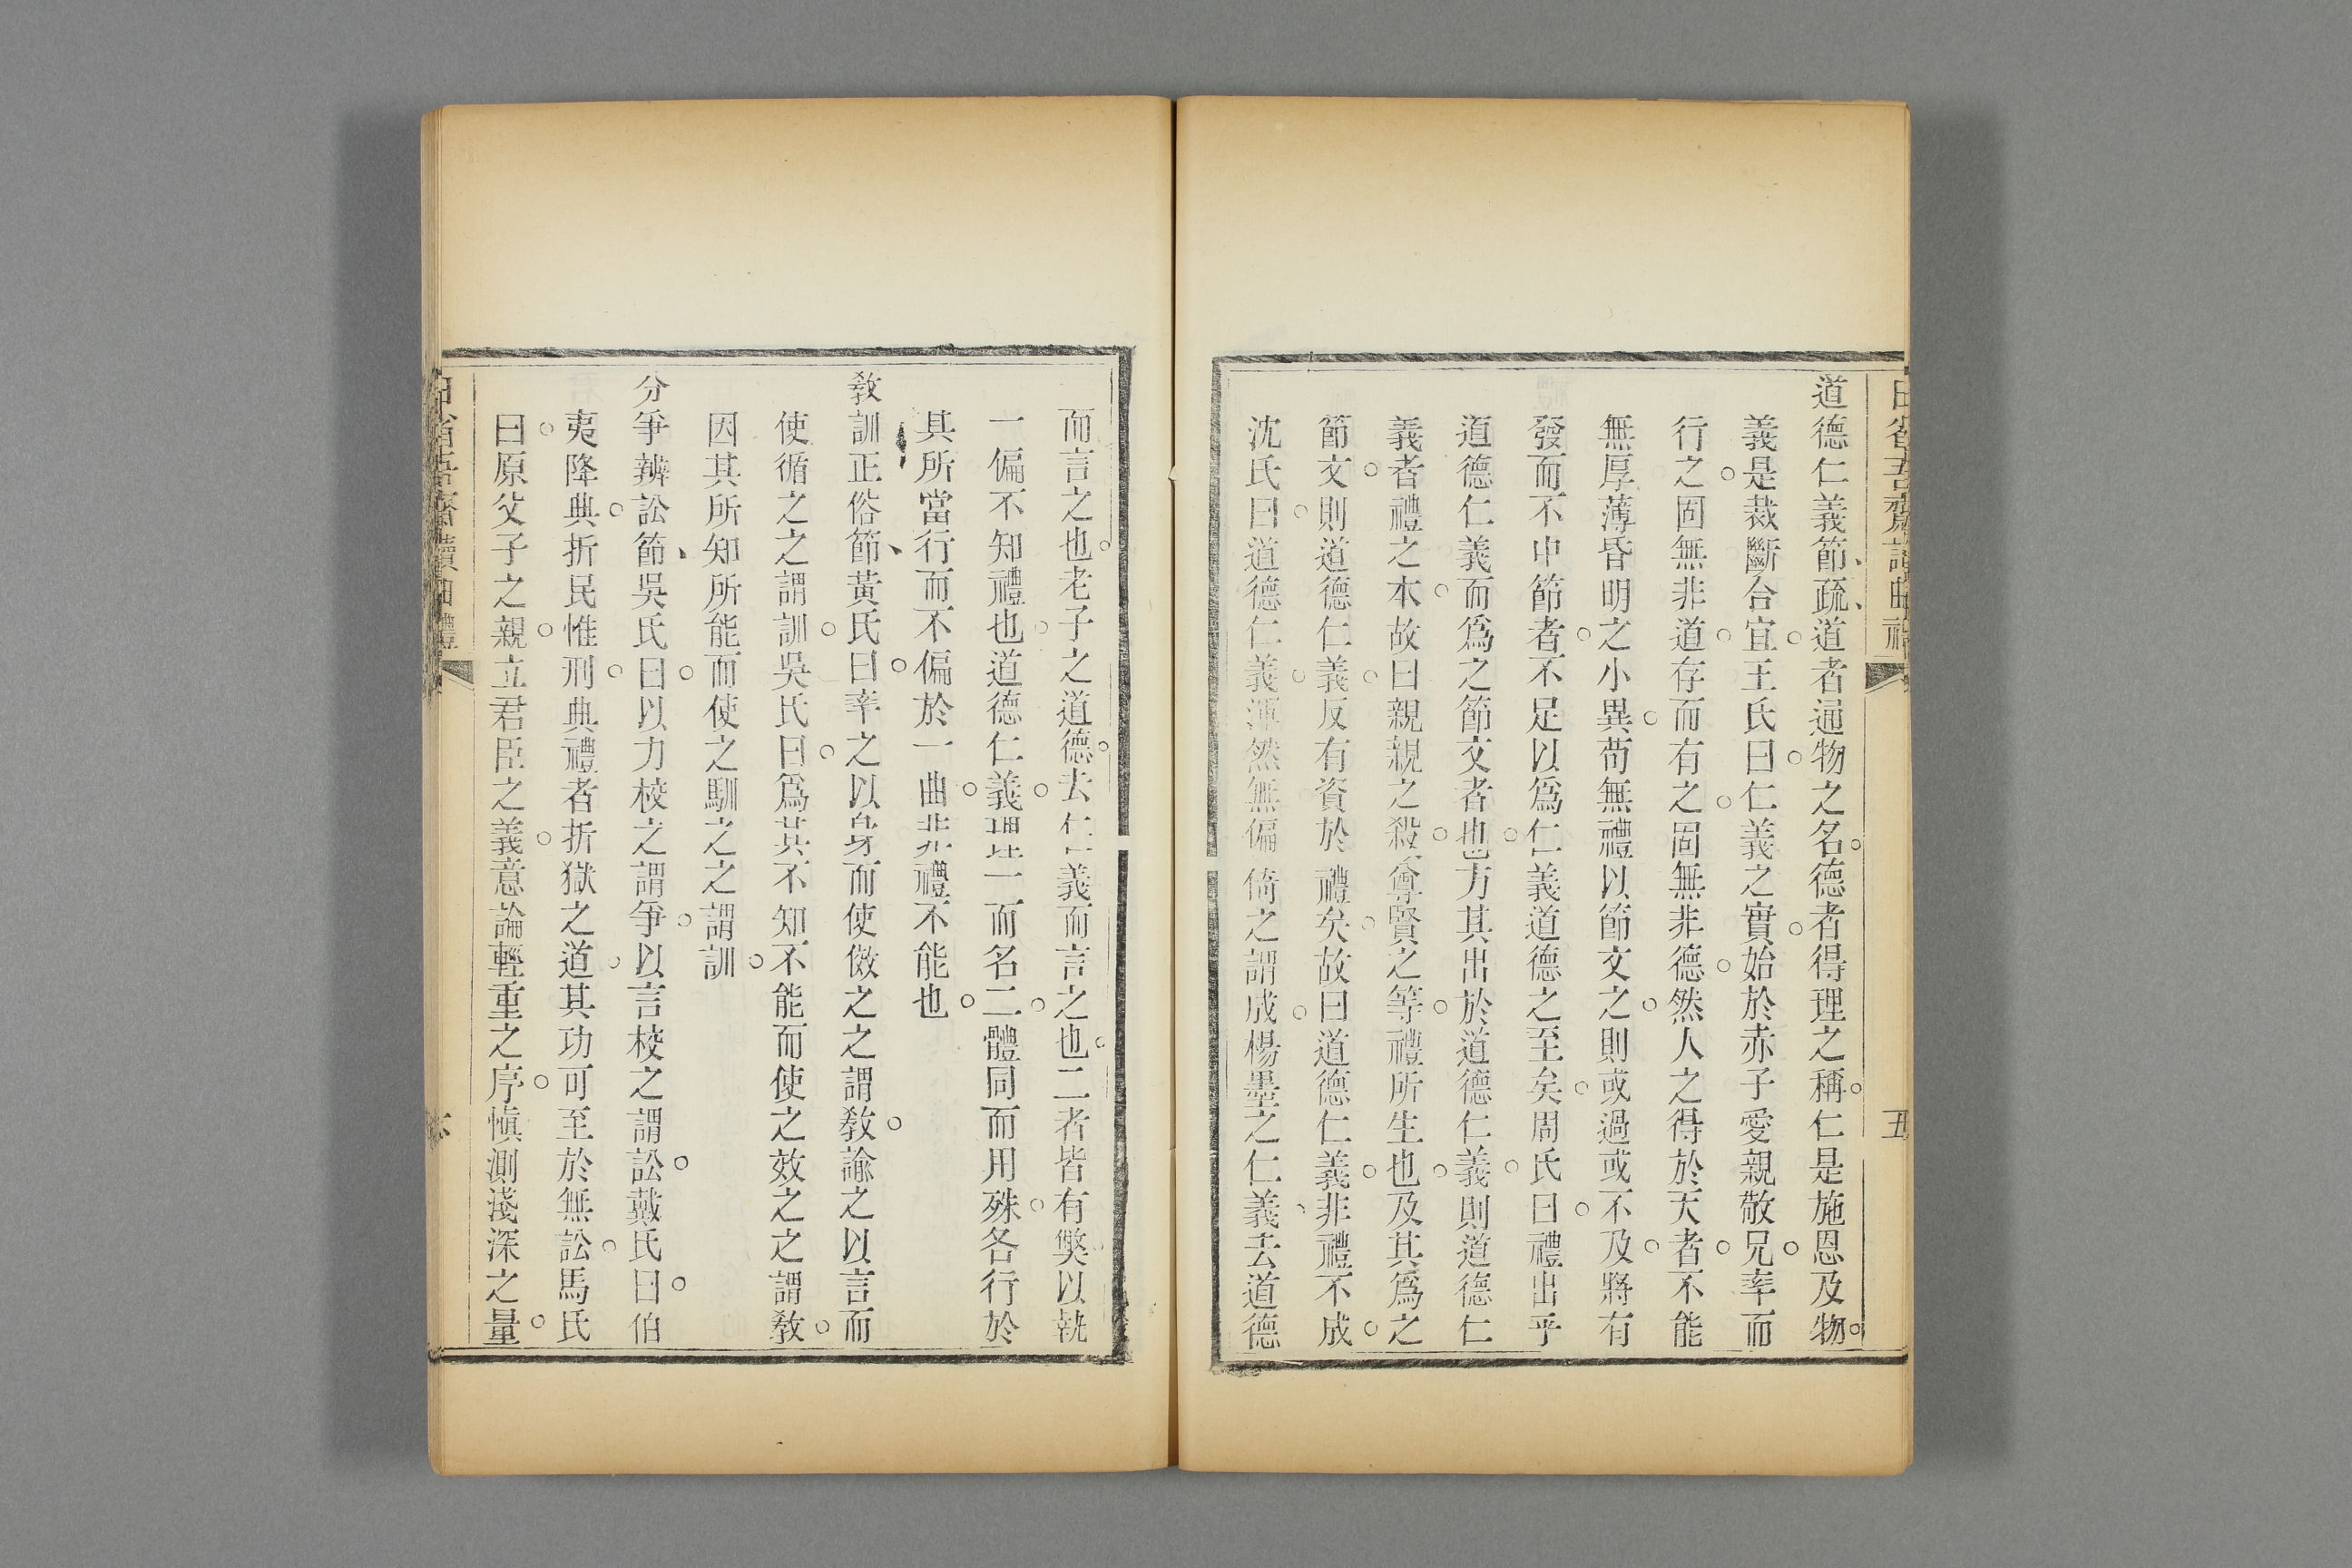 道德仁義節、疏、道者通物之名。德者得理之稱。仁是施恩及物。
義是裁斷合宜。王氏曰。仁義之實。始於赤子愛親敬兄。率而
行之。固無非道。存而有之。固無非德。然人之得於天者。不能
無厚薄昏明之小異。苟無禮以節文之。則或過或不及。將有
發而不中節者。不足以爲仁義道德之至矣。周氏曰。禮出乎
道德仁義而爲之節文者也。方其出於道德仁義。則道德仁
義者禮之本。故曰親親之殺。尊賢之等。禮所生也。及其爲之
節文。則道德仁義。反有資於禮矣。故曰道德仁義。非禮不成。
沈氏曰。道德仁義。渾然無偏倚之謂成。楊墨之仁義、去道德
五
而言之也。老子之道德。去仁義而言之也。二者皆有獘。以執
一偏不知禮也。道德仁義。理一而名二。體同而用殊。各行於
其所當行而不偏於一曲。非禮不能也。
敎訓正俗節、黃氏曰。率之以身而使傚之之謂敎。諭之以言而
使循之之謂訓。吳氏曰。爲其不知不能而使之效之之謂敎。
因其所知所能而使之馴之之謂訓。
分爭辨訟節、吳氏曰。以力校之謂爭。以言校之謂訟。戴氏曰。伯
夷降典。折民惟刑。典禮者折獄之道。其功可至於無訟。馬氏
曰。原父子之親。立君臣之義。意論輕重之序。愼測淺深之量。